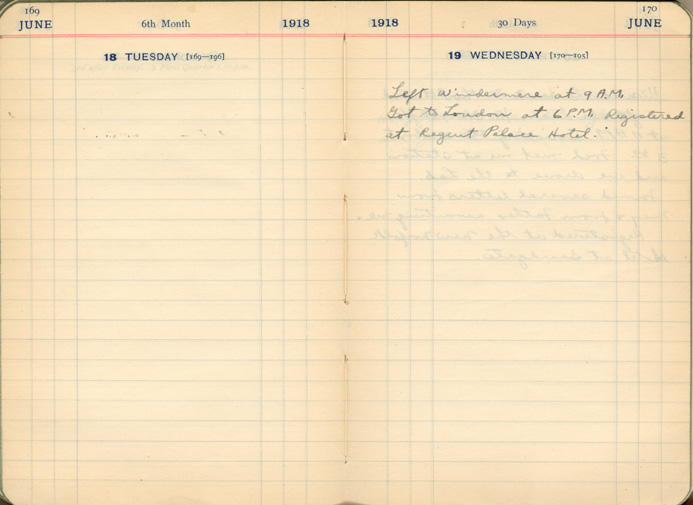 169
JUNE
6th Month
1918
18 TUESDAY [169—196]
170
1918
30 Days
JUNE
19 WEDNESDAY [170—195]
Left Windermere at 9 A.M.
Got to London at 6 P.M. Registered
at Regent Palace Hotel.